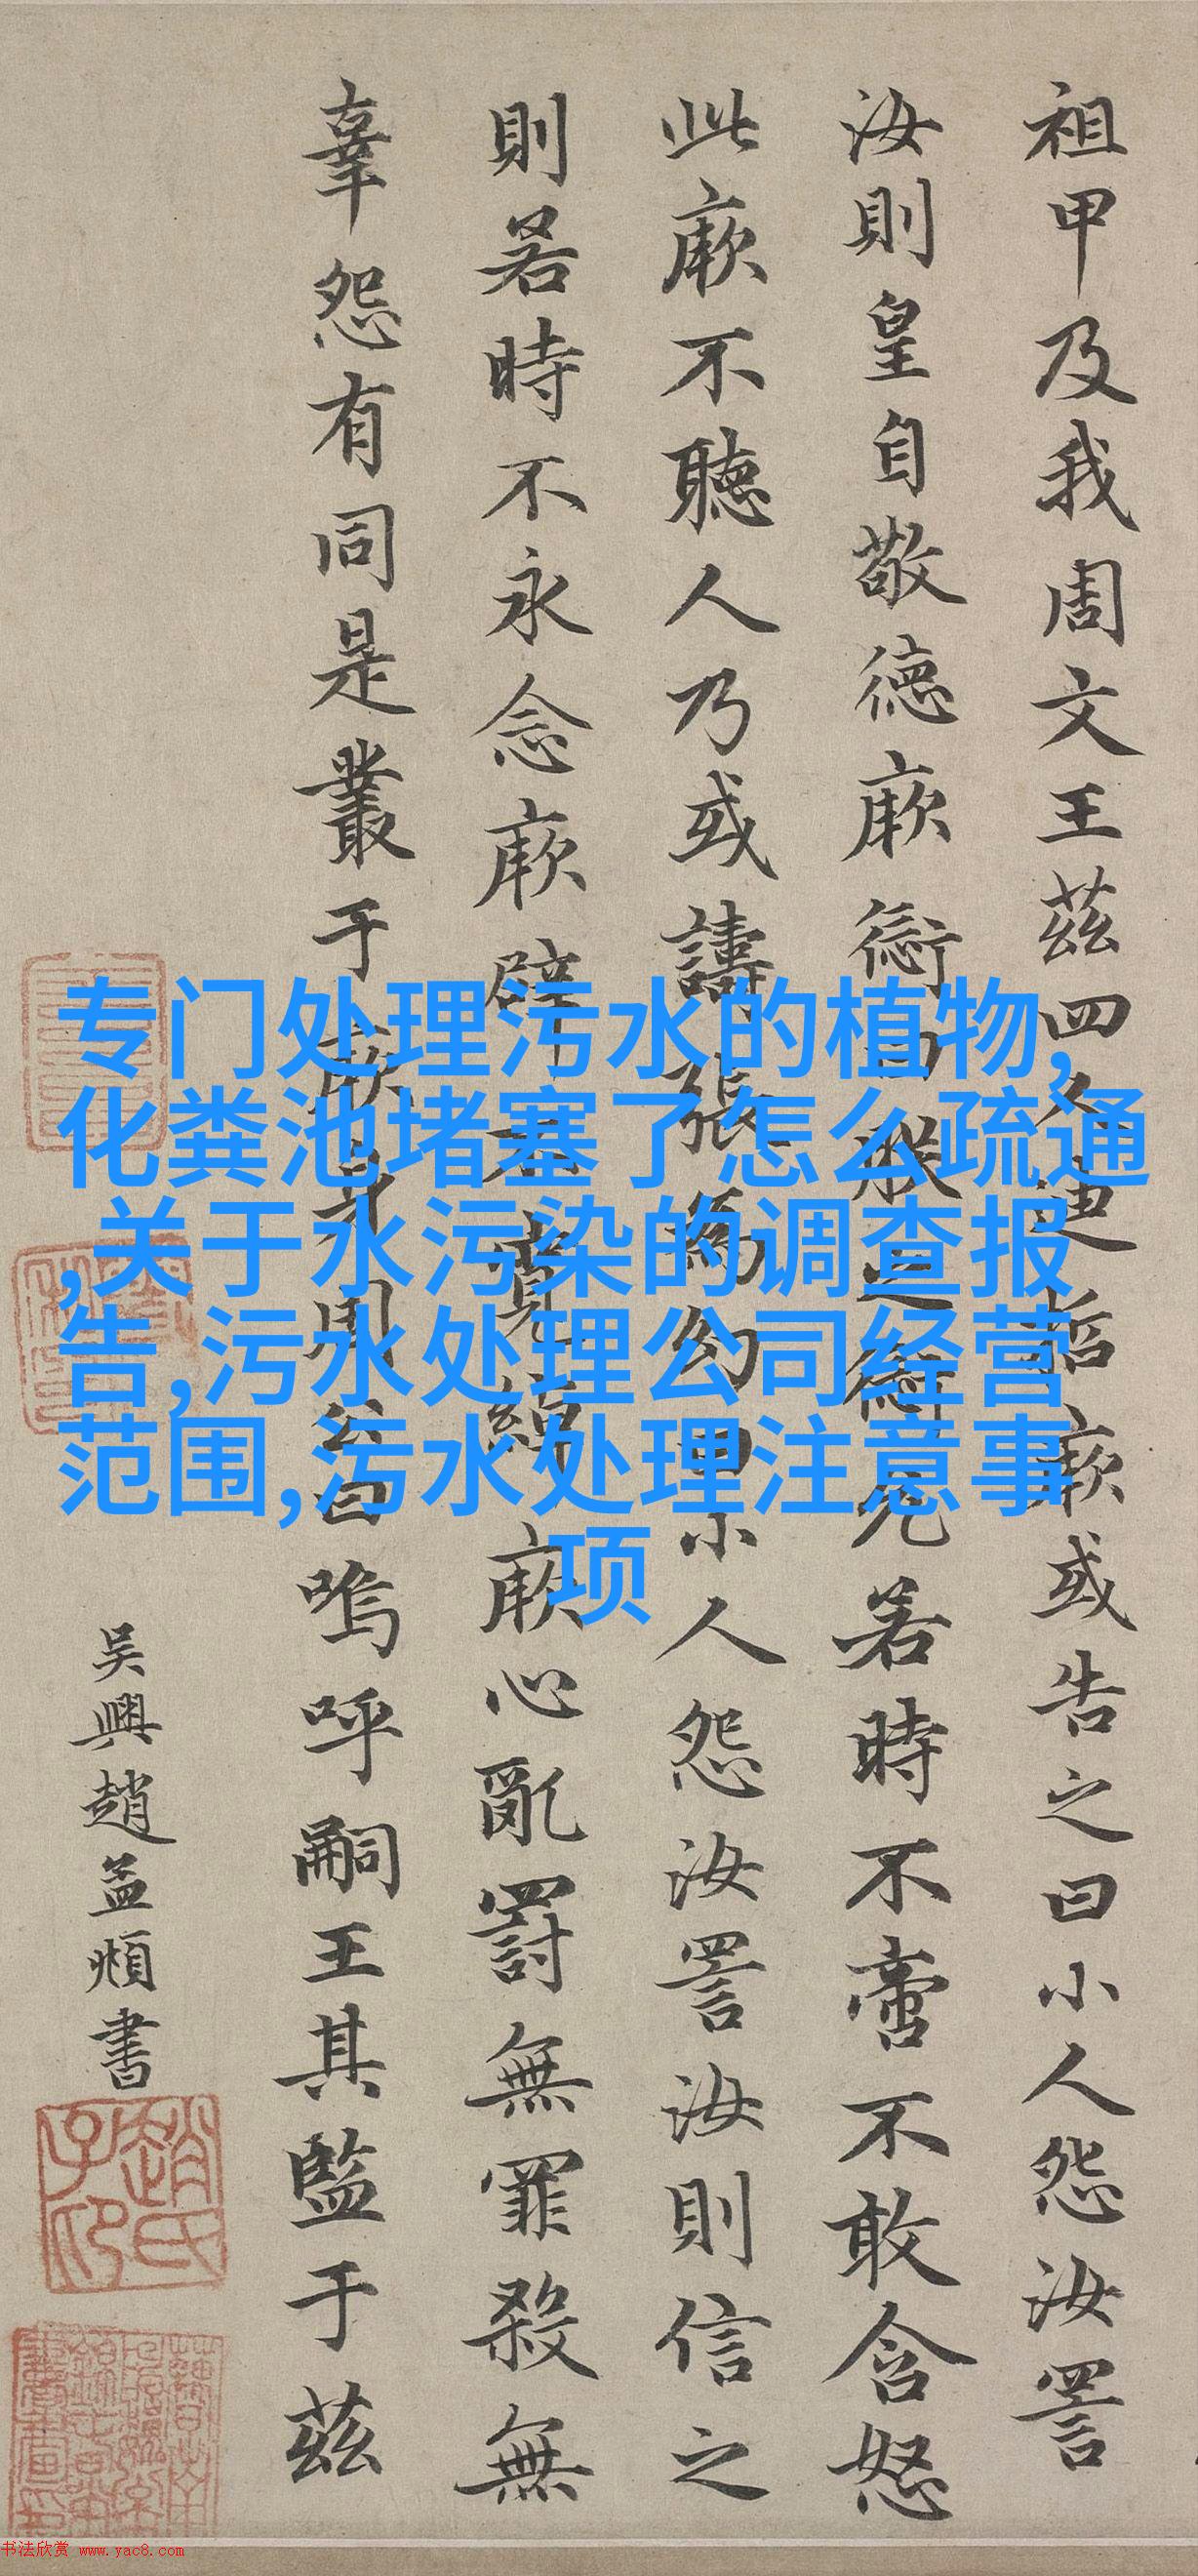 祖甲及我周文王茲四人迪哲厥或告之曰小人怨汝詈
汝則皇自敬德厥愆曰朕之愆允若時不啻不敢含怒
此厥不聽人乃或譸張為幻曰小人怨汝詈汝則信之
則若時不永念厥辟不寬綽厥心亂罰無罪殺無
辜怨有同是叢于厥身周公曰嗚呼嗣王其監于茲
吴興趙孟頫書
趙氏子昂
专门处理污水的植物,
化粪池堵塞了怎么疏通
,关于水污染的调查报
告,污水处理公司经营
范围,污水处理注意事
项
书法欣赏 www.yac8.com